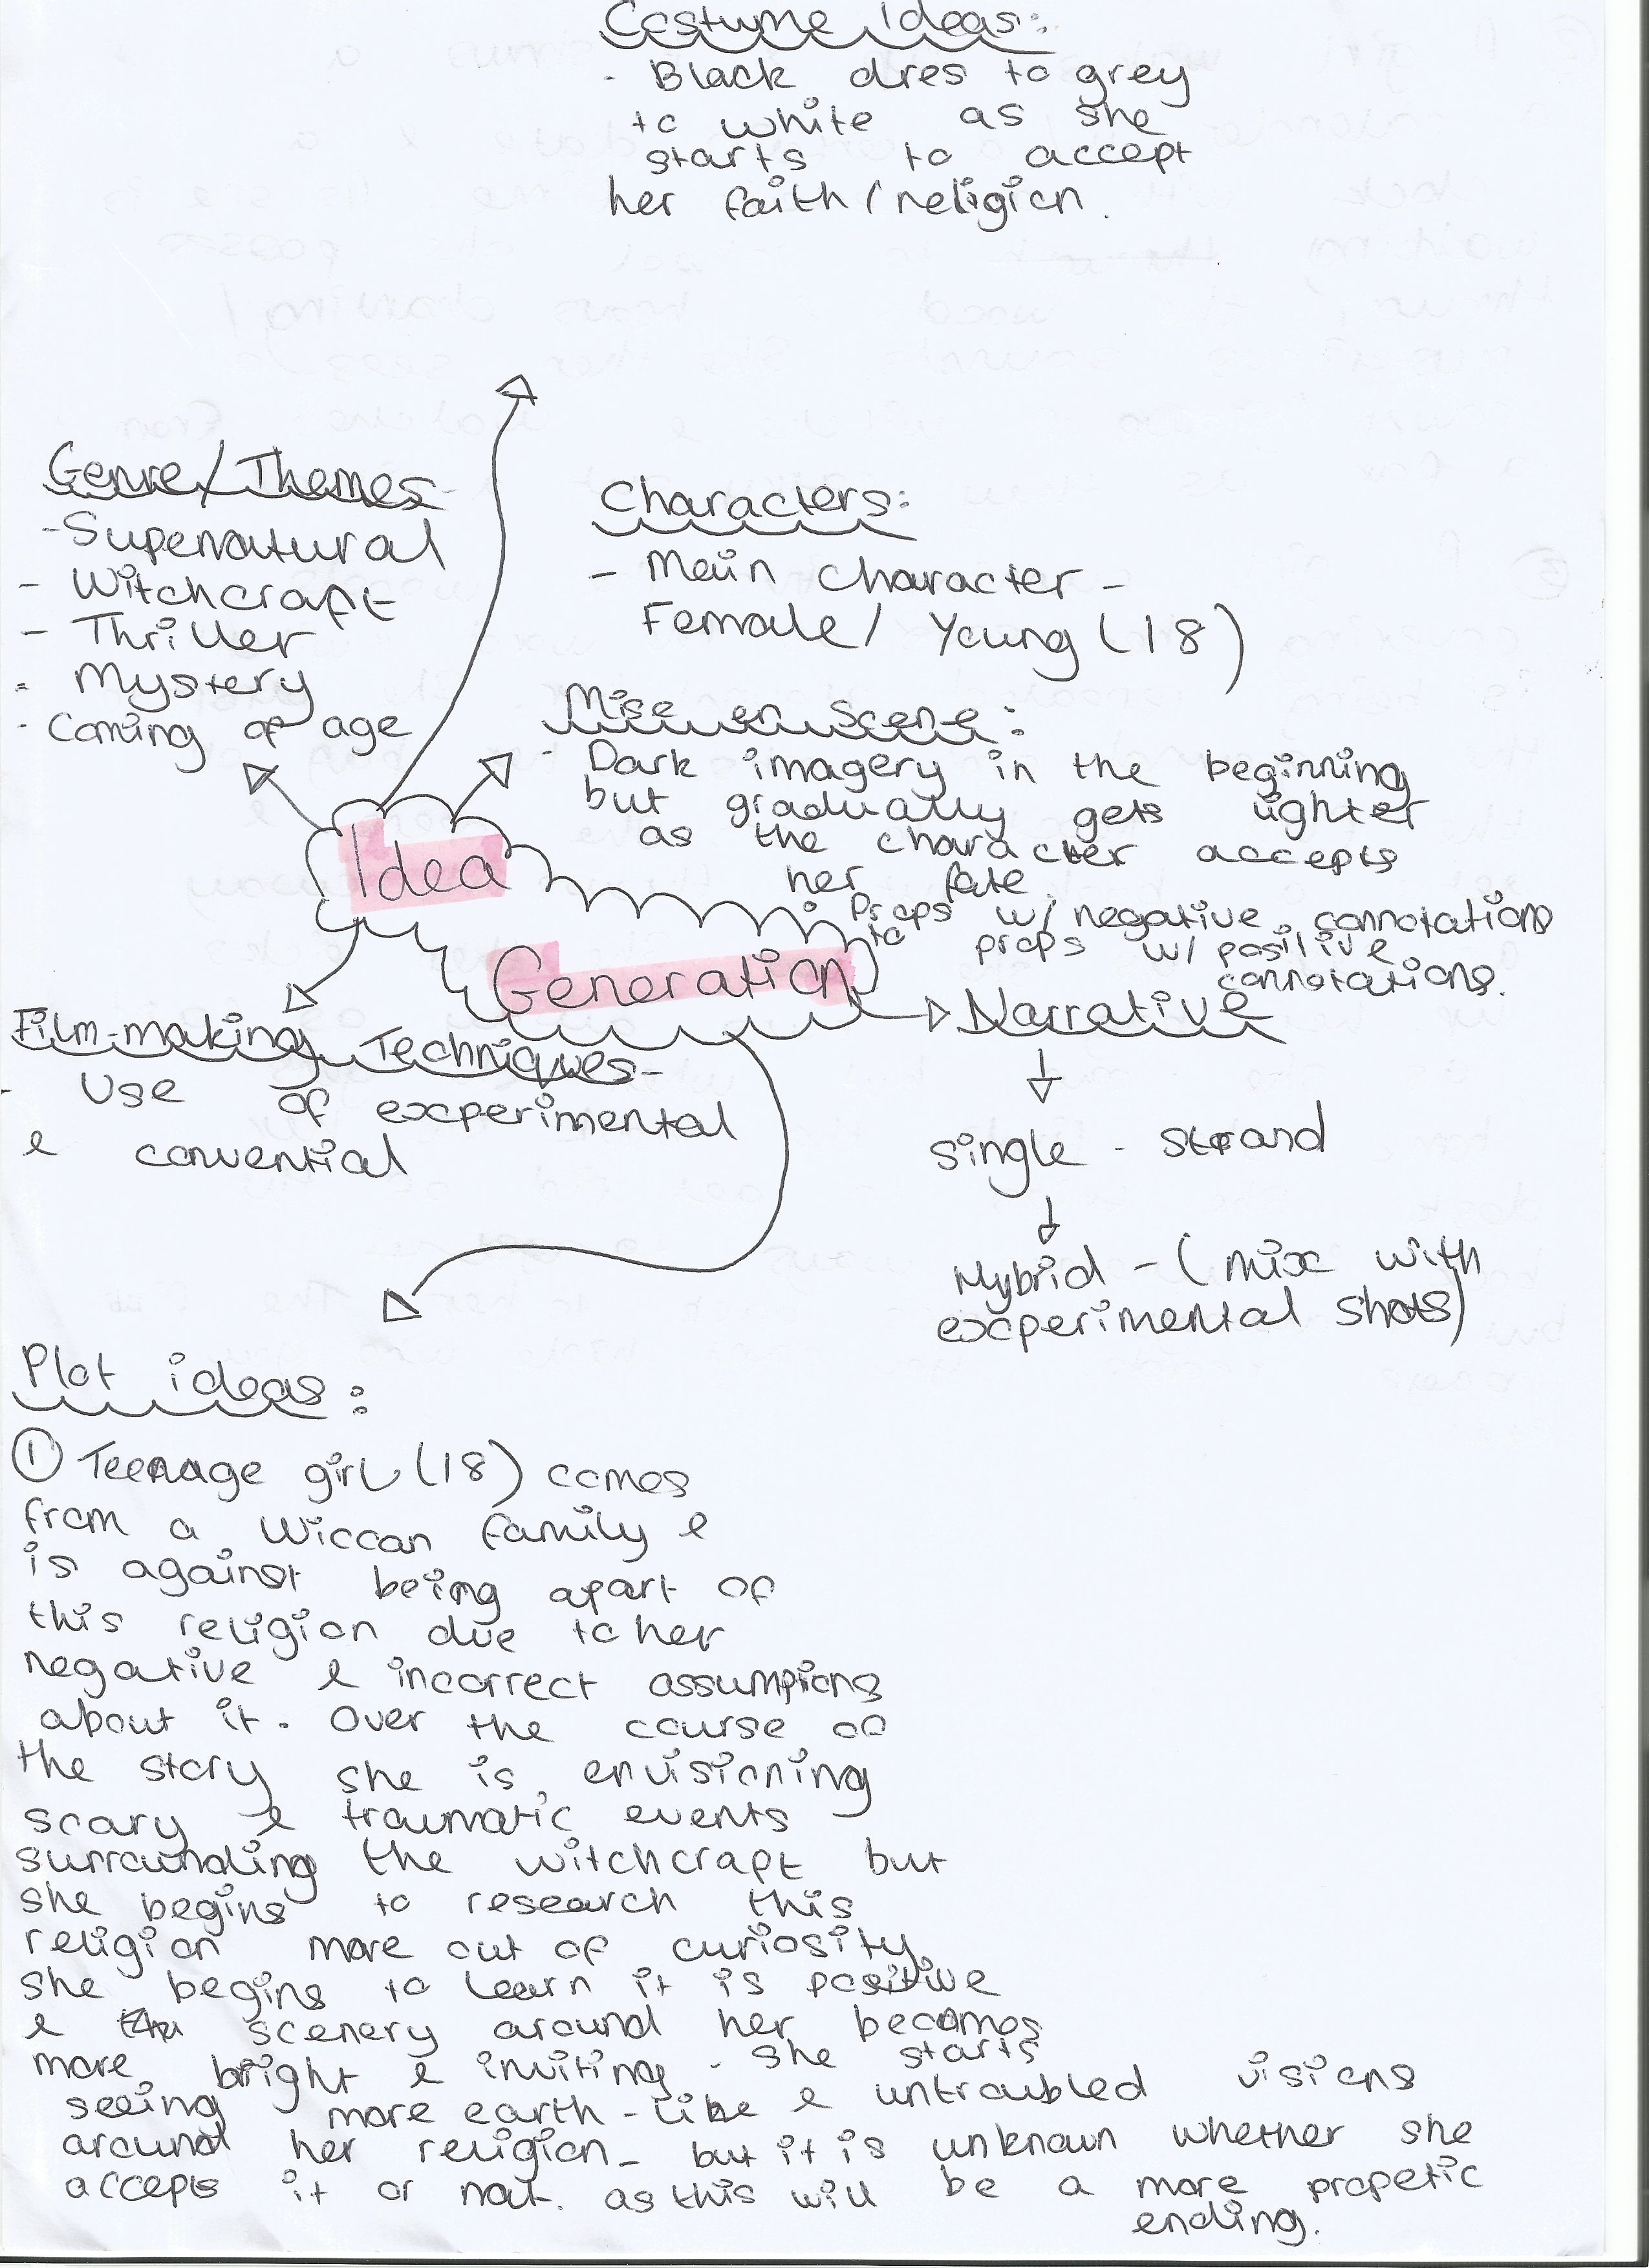 Costume Ideas:
- Black dres to grey
to white as she
starts to accept
her faith / religion.
Genre/Themes-
- Supernatural
- Witchcraft
- Thriller
- Mystery
- Coming of age
Characters:
- Main character -
Female/ Young (18)
Mise en Scene:
- Dark imagery in the beginning
but gradually gets lighter
as the character accepts
her fate.
• Props w/ negative connotations
to props w/ positive
connotations.
Idea
Generation
Film-making Techniques-
- Use of experimental
& convential
Narrative
single - strand
Hybrid - (mix with
experimental shots)
Plot ideas:
① Teenage girl (18) comes
from a Wiccan family &
is against being apart of
this religion due to her
negative & incorrect assumpions
about it. Over the course of
the story she is envisioning
scary & traumatic events
surrounding the witchcraft but
she begins to research this
religion more out of curiosity.
She begins to learn it is positive
& the scenery around her becomes
more bright & inviting. She starts
seeing more earth-like & untroubled visions
around her religion - but it is unknown whether she
accepts it or not. as this will be a more propetic
ending.